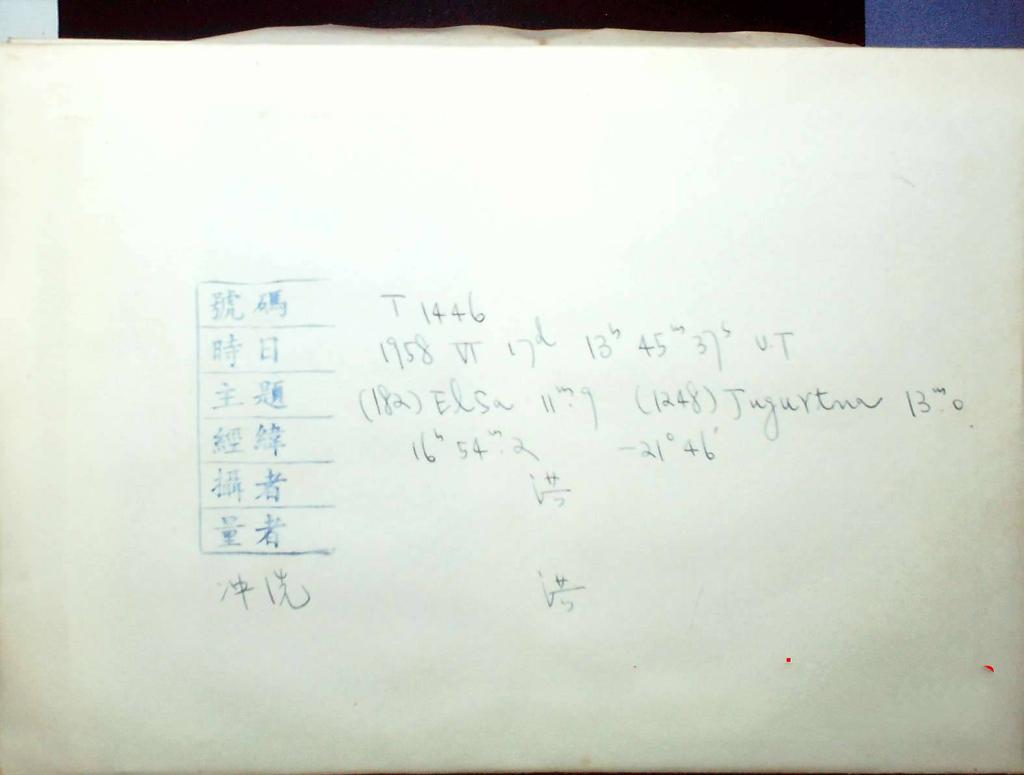 號碼 T 1446
時日 1958 VI 17d 13h 45m 37s U.T
主題 (182) Elsa 11m.9 (1248) Jugurtha 13m.0
經緯 16h 54m.2 -21° 46'
攝者 洪
量者
冲洗 洪